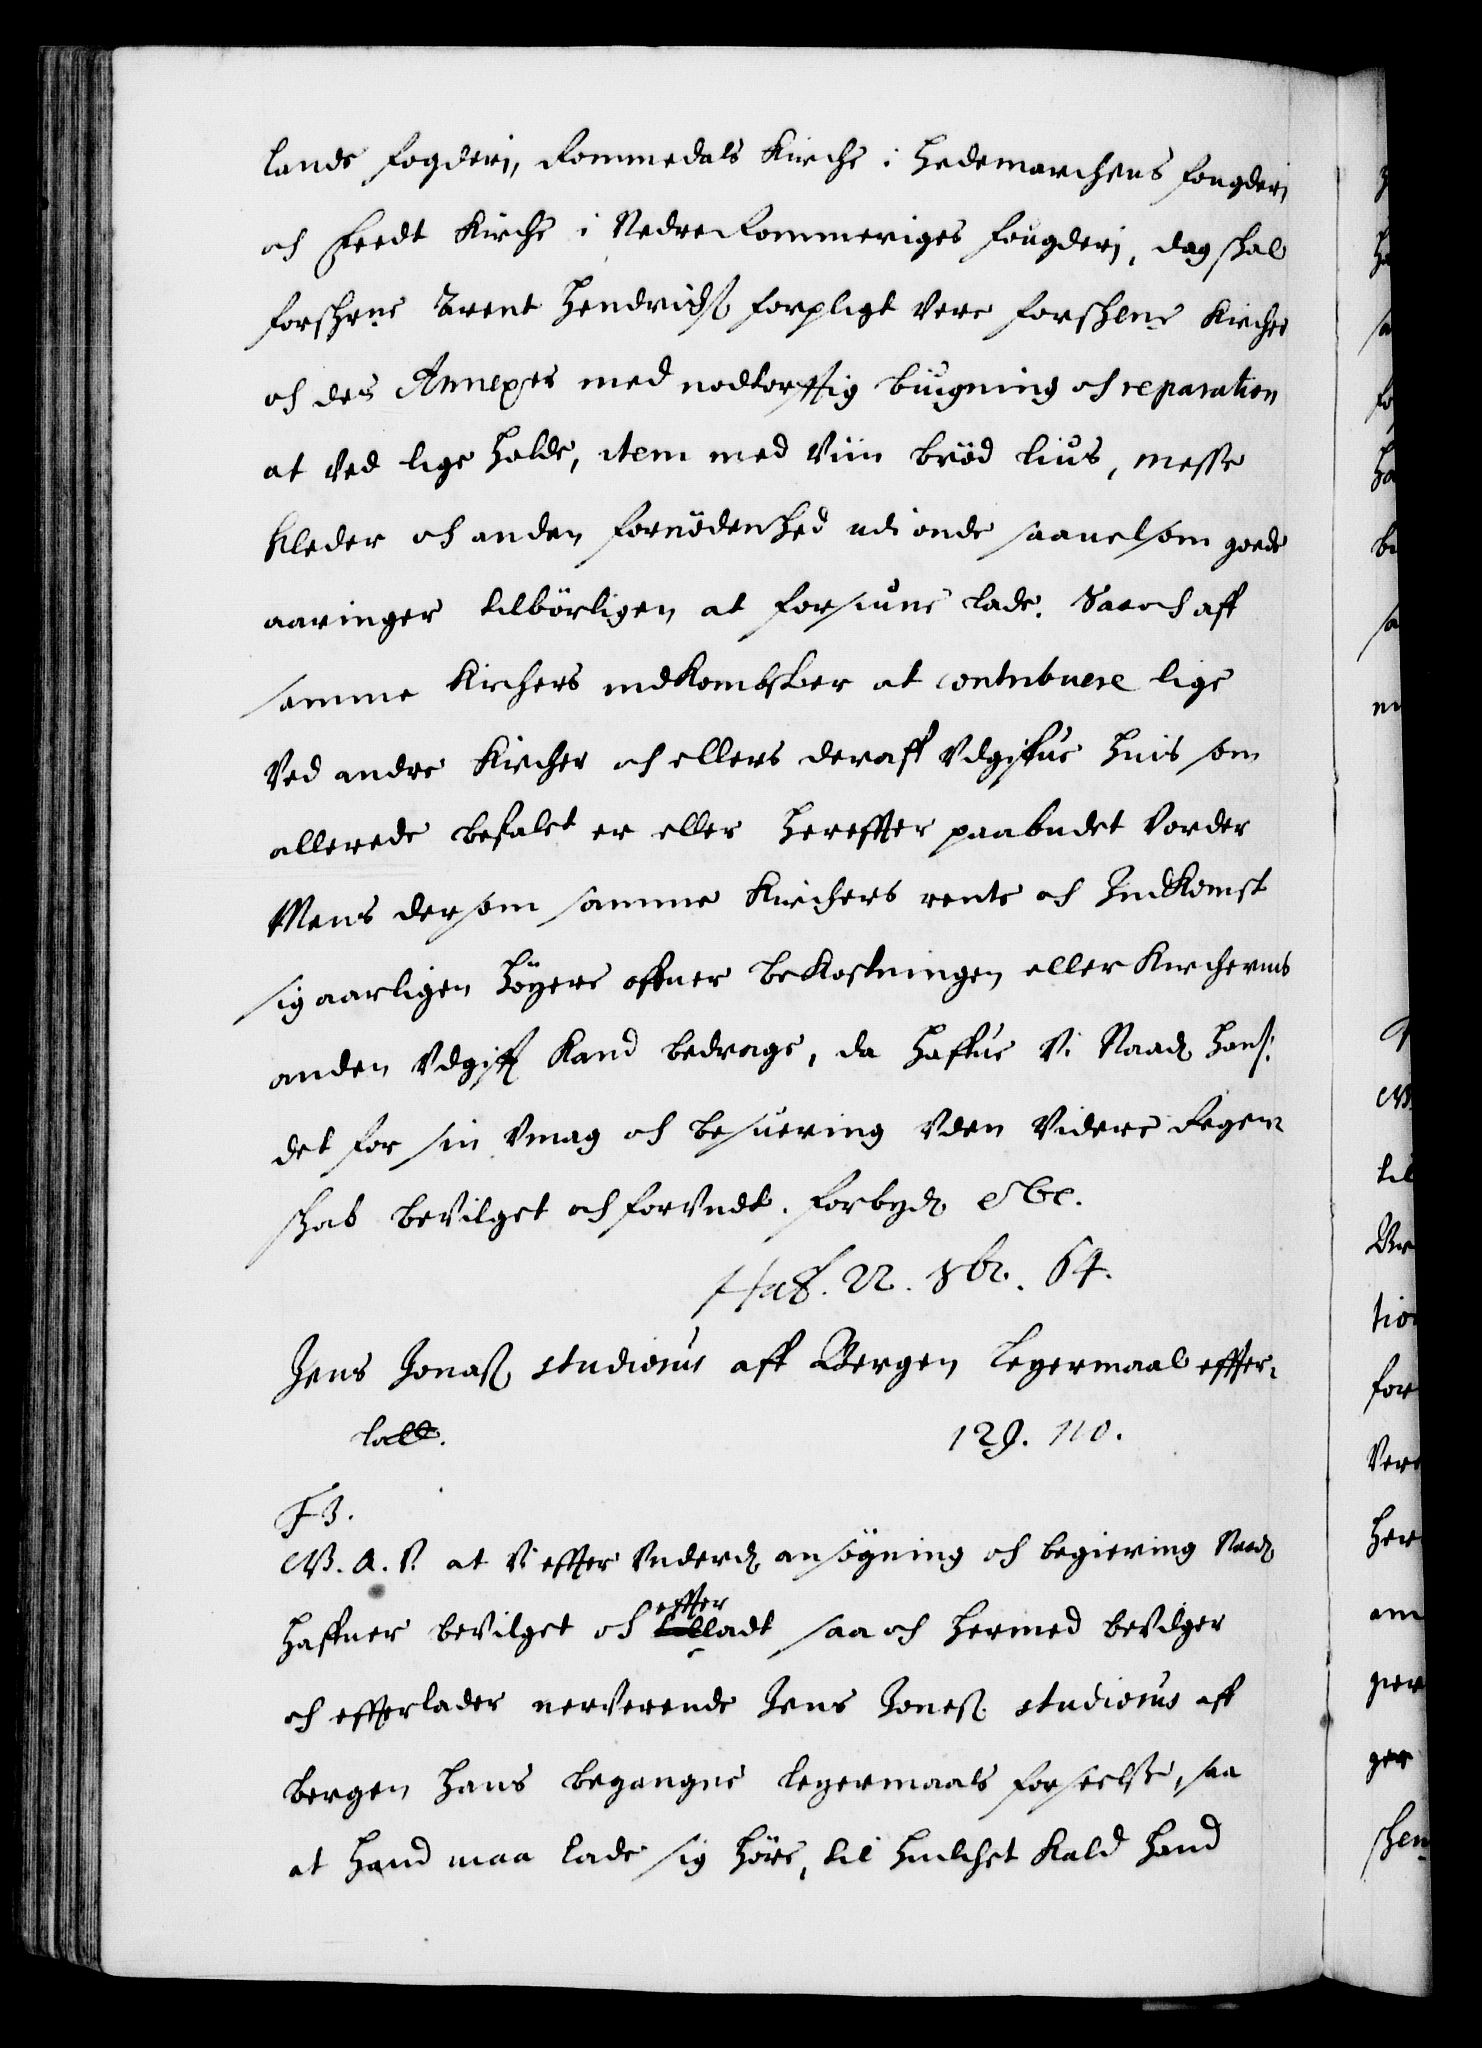 lands fogderj, Rommedals Kirche i Hedemarchens fougderj
och Feedt Kirche i Nedre Rommeriges fougderj, dog skal
forschrne Arent Hendrichß forpligt vere forschrne Kircher
och des Annexer med nodtorfftig bÿgning och reparation
at ved lige holde, item med viin brød lius, messe
kleder och anden fornødenhed udi onde saauelsom goede
aaringer tilbørligen at forsiune lade. Saa och aff
samme Kirchers indkombster at contribuere lige
ved andre Kircher och ellers deraff vdgifue huis som
allerede befalet er eller hereffter paabudet vorder
Mens dersom samme Kirchers rente och Indkomst
sig aarligen høyere offuer bekostningen eller Kirchernis
anden vdgifft kand bedrage, da haffue Vi Naadl hans:
det for sin vmag och besuering vden videre Regen-
skab bevilget och forundt. forbydl etc.
Haf. 22. 8br. 64.
Jens Jonaß studiosus aff Bergen legermaal effter-
latt.
129. no.
F3.
W. A. V. at Vi effter vnderdl ansøgning och begiering Naadl
haffuer bevilget och effter ladt saa och hermed bevilger
och effterlader nerverende Jens Joneß studiosus aff
bergen hans begangne legermaals forseelse, saa
at hand maa lade sig høre, til huilchet Kald hand